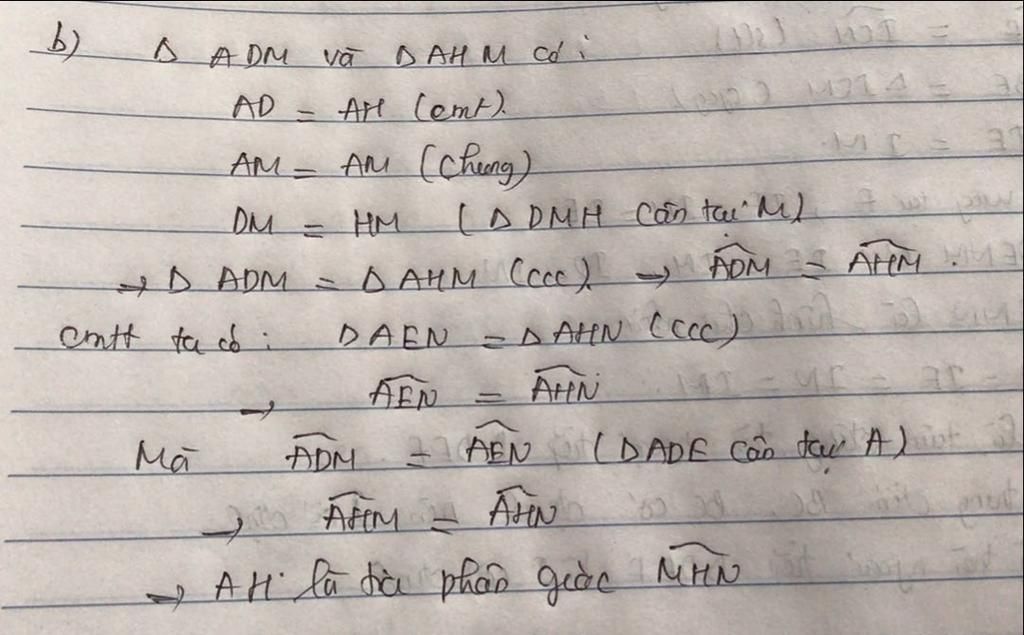 b) Δ ADM và Δ AHM có :
AD = AH (cmt).
AM = AM (Chung)
DM = HM (Δ DMH cân tại M)
→ Δ ADM = Δ AHM (ccc). → ADM = AHM .
cmtt ta có : Δ AEN = Δ AHN (ccc)
→ AEN = AHN
Mà ADM = AEN (Δ ADE cân tại A)
→ AHM = AHN
→ AH là tia phân giác MHN